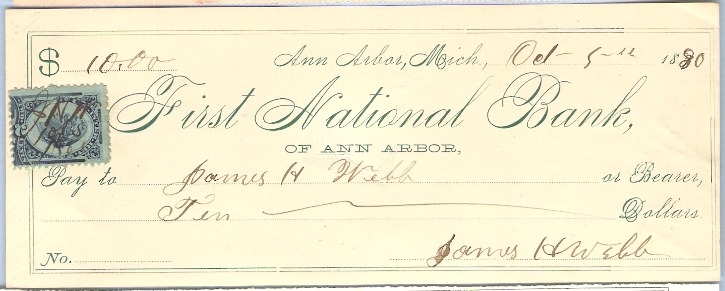 $ 10.00 Ann Arbor, Mich, Oct 5th 1880
First National Bank,
OF ANN ARBOR,
Pay to James H Webb or Bearer,
Ten Dollars
No. James H Webb